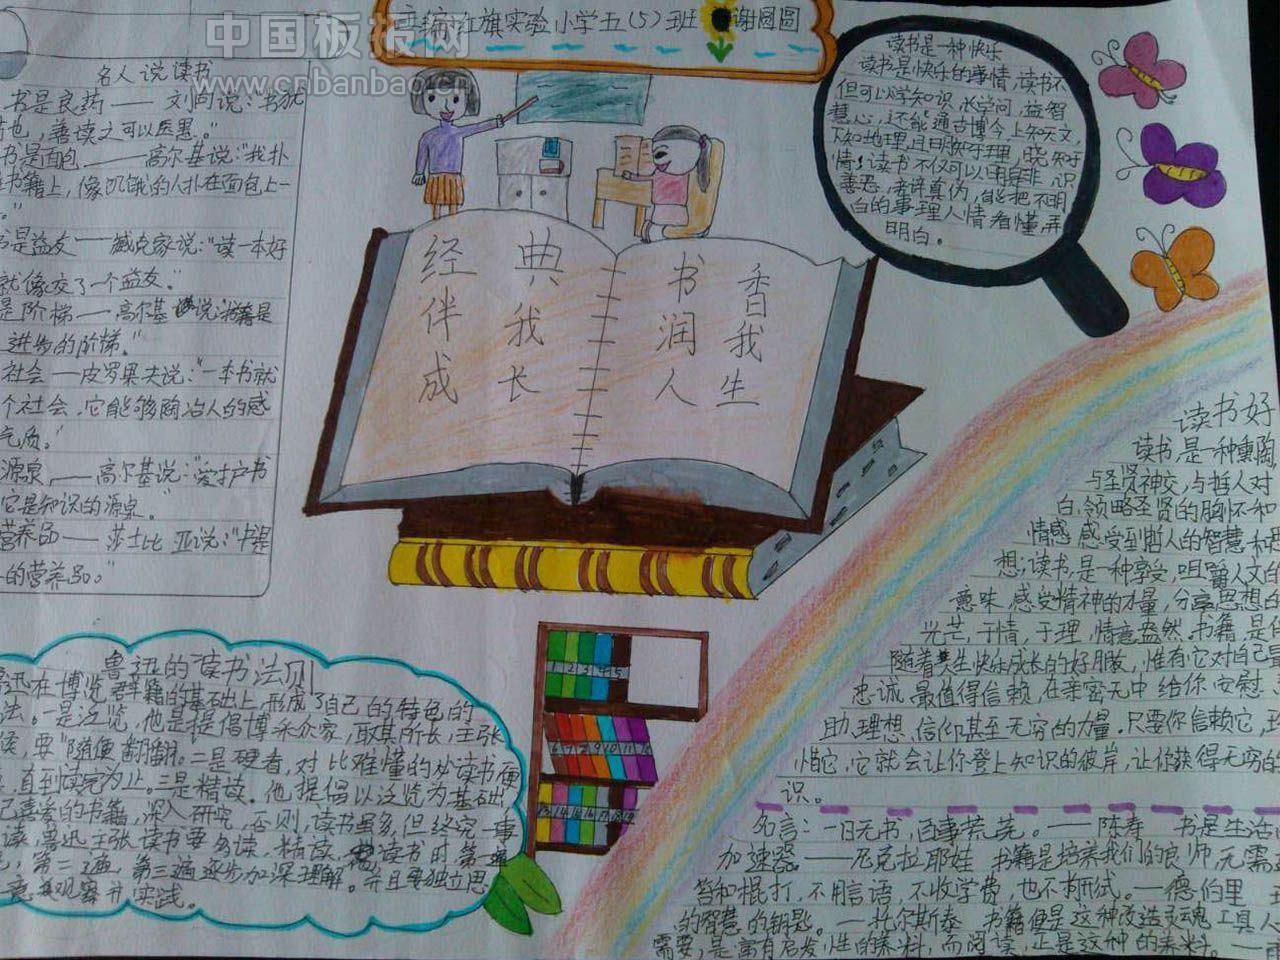 中国板报网
www.cnbanbao.cn
主编:红旗实验小学五(5)班 谢圆圆
名人说读书
书是良药——刘向说:"书犹
药也,善读之可以医愚。"
书是面包——高尔基说:"我扑
在书籍上,像饥饿的人扑在面包上一
书是益友——臧克家说:"读一本好
就像交了一个益友。"
是阶梯——高尔基说:书籍是
进步的阶梯。"
社会——皮罗果夫说:"一本书就
个社会,它能够陶冶人的感
气质。"
源泉——高尔基说:"爱护书
它是知识的源泉。
营养品——莎士比亚说:"书是
的营养品。"
经典 书香
伴我 润我
成长 人生
读书是一种快乐
读书是快乐的事情,读书不
但可以学知识,长学问,益智
慧心,还能通古博今,上知天文,
下知地理,且明
情!读书不仅可以明是非,识
善恶,辨真伪,能把不明
白的事理人情看懂,弄
明白。
读书好
读书,是一种熏陶
与圣贤神交,与哲人对
白,领略圣贤的胸怀和
情感,感受到哲人的智慧和
想;读书,是一种享受,咀嚼人文的
意味,感受精神的力量,分享思想的
光芒,于情,于理,情意盎然。书籍,是
随着 生快乐成长的好朋友,惟有它对自己最
忠诚,最值得信赖,在亲密无中给你安慰
助,理想,信仰甚至无穷的力量。只要你信赖它,
惜它,它就会让你登上知识的彼岸,让你获得无穷的
识。
名言:一日无书,百事荒芜。——陈寿 书是生活
加速器——尼克拉耶娃 书籍是培养我们的良师,无需
笞和棍打,不用言语,不收学费,也不 试。——德伯里
的智慧的钥匙。——托尔斯泰 书籍便是这种改造灵魂工具人
需要,是富有启发性的养料,而阅读,正是这种的养料。
鲁迅的读书法则
鲁迅在博览群籍的基础上,形成了自己的特色的
法。一是泛览,他是提倡博采众家,取其所长,主张
要"随便翻翻"。二是硬看,对比难懂的必读书
直到读完为止。三是精读。他提倡以泛览为基础
己喜爱的书籍,深入研究,否则,读书虽多,但终究一事
读,鲁迅主张读书要多读,精读, 读书时,第一遍
第二遍,第三遍逐步加深理解。并且要独立思
观察并实践。
1 2 3 4 5
6 7 8 9 10 11 12
13 14 15 16 17 18 19